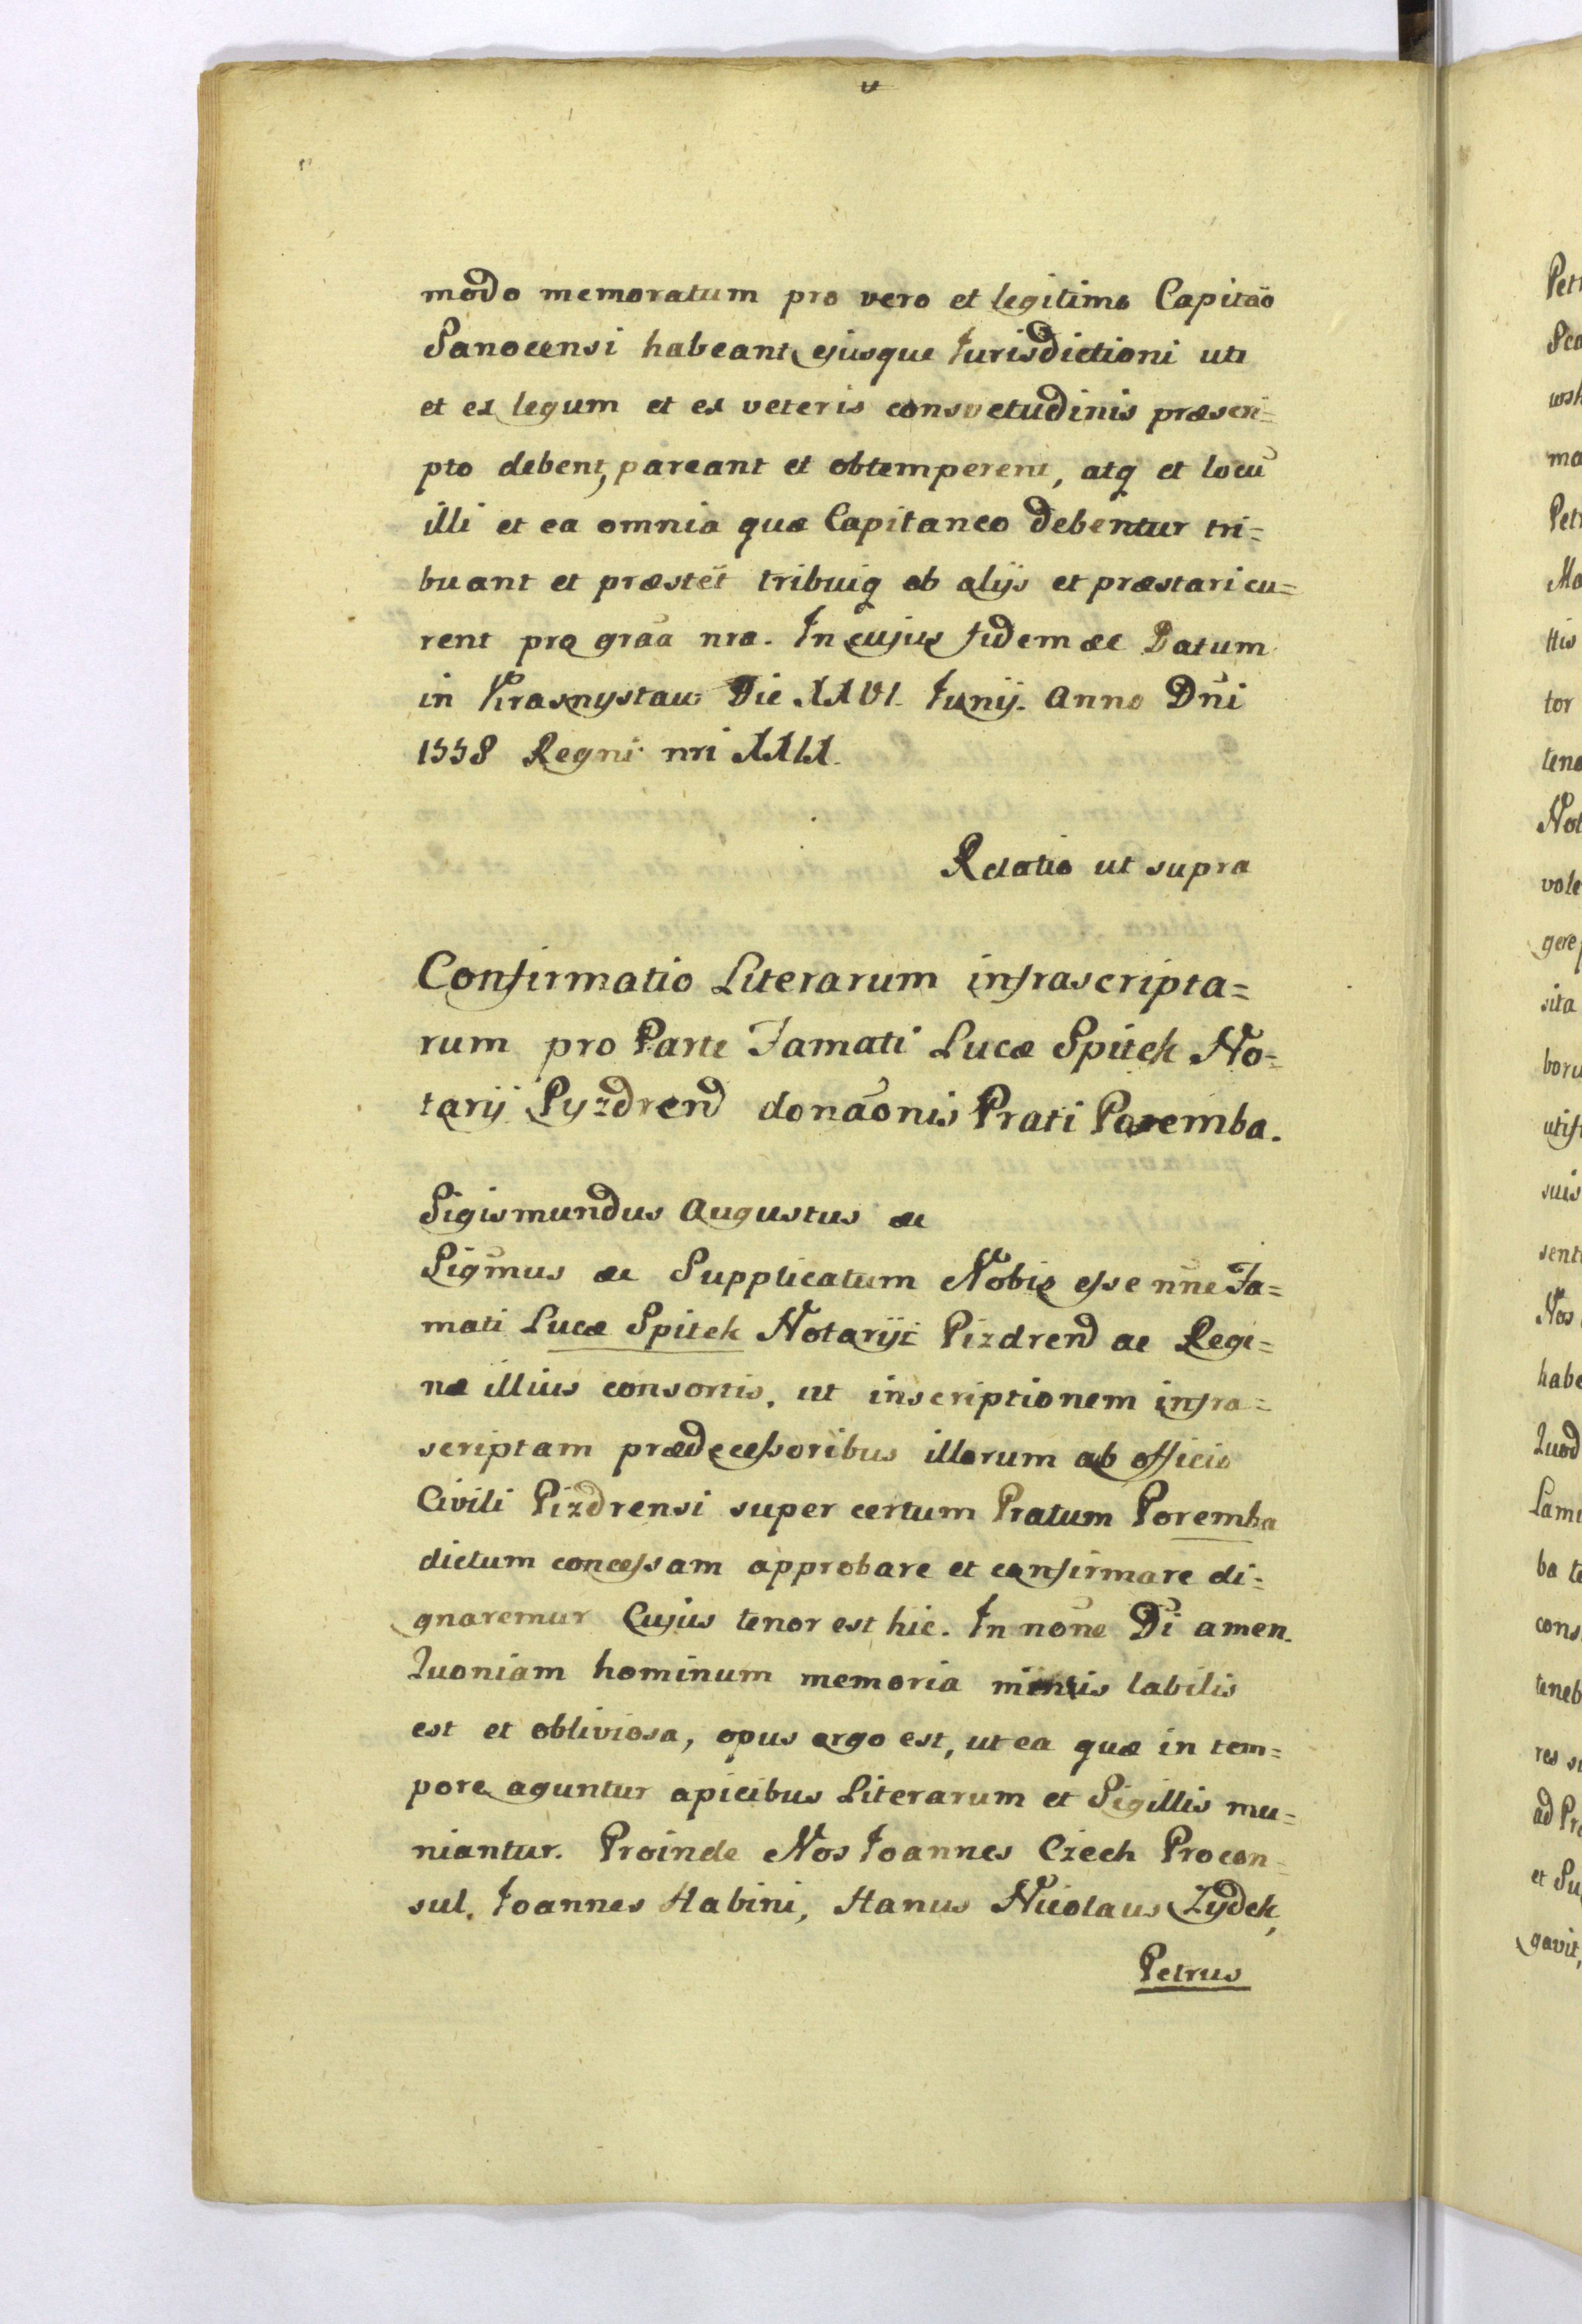 modo memoratum pro vero et legitimo Capitāo
Sanocensi habeant, ejusque Jurisdictioni uti
et ex legum et ex veteris consvetudinis præscri=
pto debent, pareant et obtemperent, atq et locū
illi et ea omnia quæ Capitaneo debentur tri=
buant et præstēt tribuiq ab alijs et præstari cu=
rent pro grāa nra. In cujus fidem &c Datum
in Krasnystaw Die XXVI. Junij. Anno Dñi
1558 Regni nri XXIX.
Relatio ut supra
Confirmatio Literarum infrascripta=
rum pro Parte Famati Lucæ Spitek No=
tarij Pyzdren donāonis Prati Poremba.
Sigismundus Augustus &c
Sigmūs &c Supplicatum Nobis esse nñe Fa=
mati Lucæ Spitek Notarij Pizdren ac Regi=
næ illius consortis, ut inscriptionem infra=
scriptam prædecessoribus illorum ab officio
Civili Pizdrensi super certum Pratum Poremba
dictum concessam approbare et confirmare di=
gnaremur Cujus tenor est hic. In noñe Di amen.
Quoniam hominum memoria labilis
est et obliviosa, opus ergo est, ut ea quæ in tem=
pore aguntur apicibus Literarum et Sigillis mu=
niantur. Proinde Nos Joannes Czech Procon=
sul, Joannes Habini, Hanus Nicolaus Zydek,
Petrus